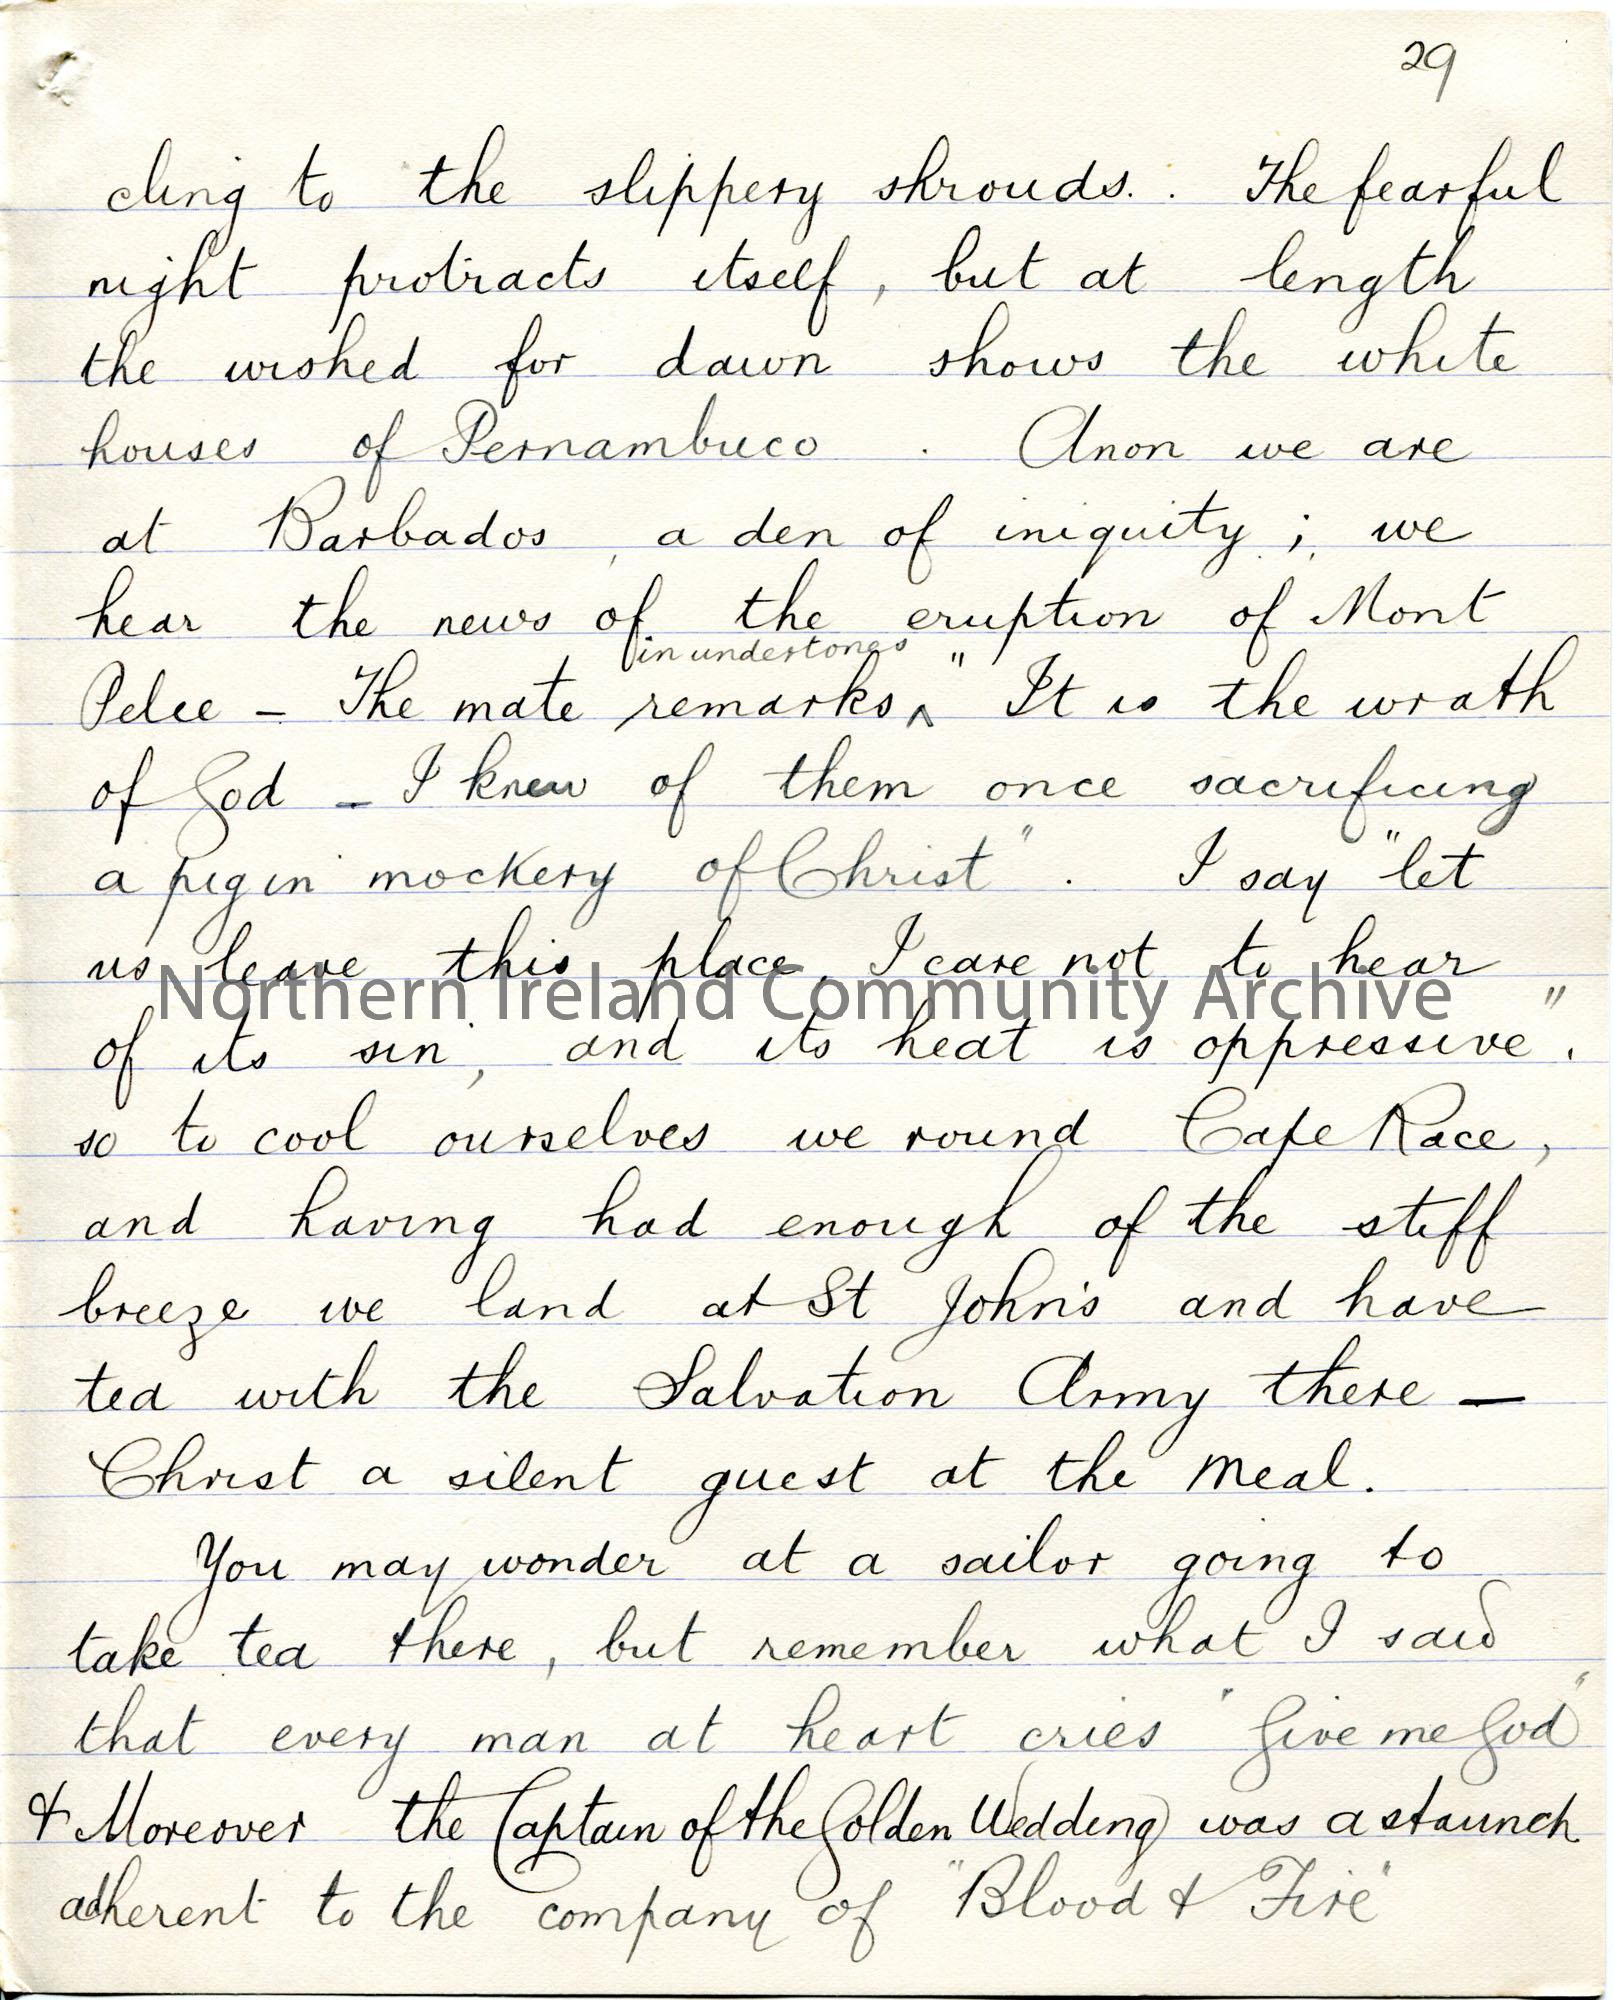 29
cling to the slippery shrouds. . The fearful
night protracts itself, but at length
the wished for dawn shows the white
houses of Pernambuco . Anon we are
at Barbados, a den of iniquity ; we
hear the news of the eruption of Mont
in undertones
Pelee - The mate remarks ^ " It is the wrath
of God - I knew of them once sacrificing
a pig in mockery of Christ" . I say "let
us leave this place, I care not to hear
Northern Ireland Community Archive
of its sin, and its heat is oppressive".
so to cool ourselves we round Cape Race,
and having had enough of the stiff
breeze we land at St John's and have
tea with the Salvation Army there —
Christ a silent guest at the meal.
You may wonder at a sailor going to
take tea there, but remember what I said
that every man at heart cries "Give me God"
& Moreover the Captain of the Golden Wedding was a staunch
adherent to the company of "Blood & Fire"